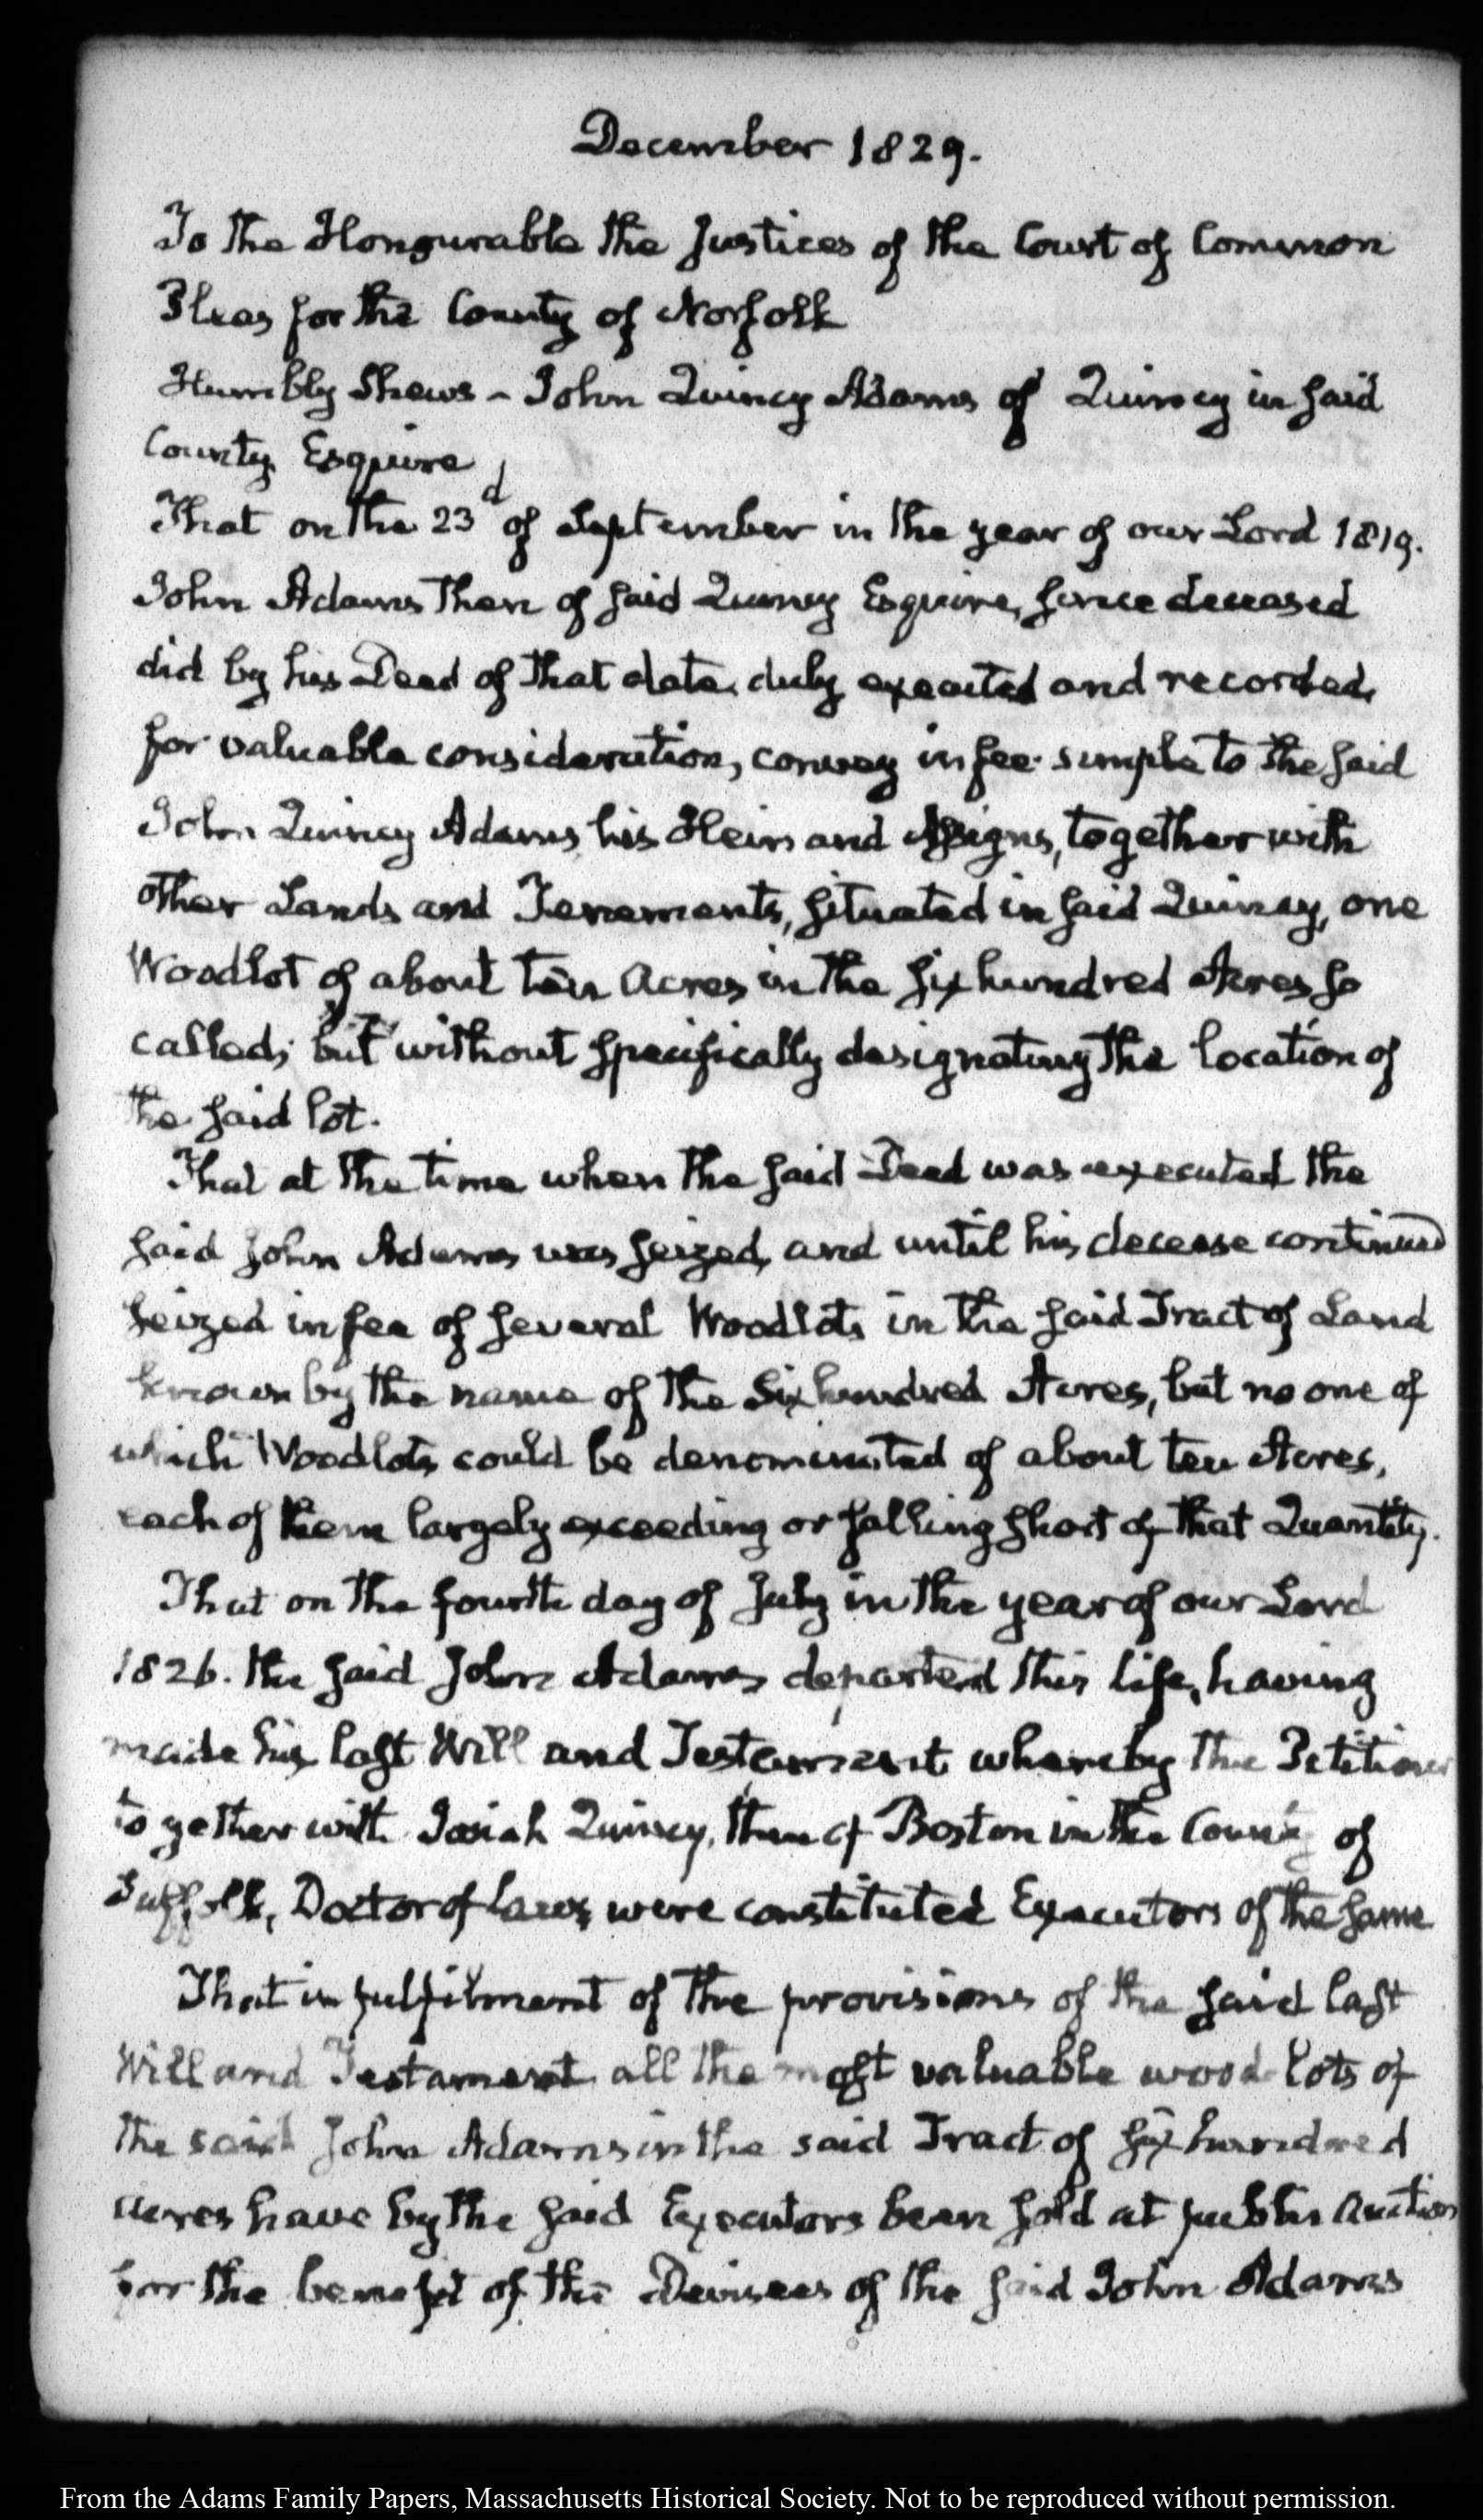 December 1829.
To the Honourable the Justices of the Court of Common
Pleas for the County of Norfolk
Humbly Shews - John Quincy Adams of Quincy in said
County Esquire
That on the 23d of September in the year of our Lord 1819.
John Adams then of said Quincy Esquire, since deceased
did by his Deed of that date, duly executed and recorded,
for valuable consideration, convey in fee simple to the said
John Quincy Adams, his Heirs and Assigns, together with
other Lands and Tenements, situated in said Quincy, one
Woodlot of about ten Acres in the six hundred Acres so
called; but without specifically designating the location of
the said lot.
That at the time when the said Deed was executed the
said John Adams was seized, and until his decease continued
seized in fee of several Woodlots in the said Tract of Land
known by the name of the Six hundred Acres, but no one of
which Woodlots could be denominated of about ten Acres,
each of them largely exceeding or falling short of that Quantity.
That on the fourth day of July in the year of our Lord
1826. the said John Adams departed this life, having
made his last Will and Testament whereby the Petitioner
together with Josiah Quincy, then of Boston in the County of
Suffolk, Doctor of Laws were constituted Executors of the same
That in fulfilment of the provisions of the said last
Will and Testament all the most valuable wood lots of
the said John Adams in the said Tract of six hundred
acres have by the said Executors been sold at public auction
for the benefit of the Devisees of the said John Adams
From the Adams Family Papers, Massachusetts Historical Society. Not to be reproduced without permission.